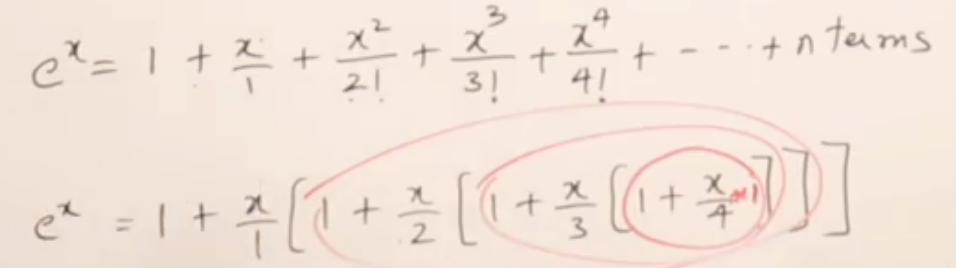 e^x = 1 + x/1 + x^2/2! + x^3/3! + x^4/4! + - - - - + n terms
e^x = 1 + x/1 [1 + x/2 [1 + x/3 [1 + x/4 *1]]]